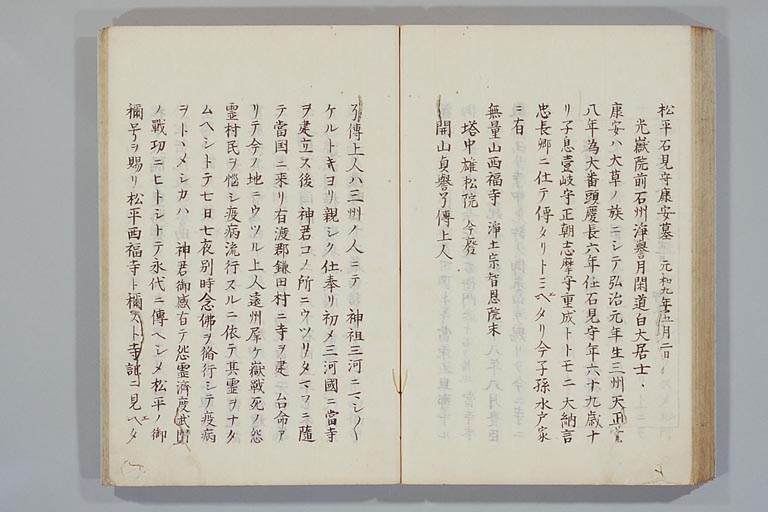 松平石見守康安墓 元和九年五月二日
光嶽院前石州海譽月閑道白大居士
康安ハ大草ノ族ニシテ弘治元年生三州天正
八年為大番頭慶長六年任石見守年六十九歳ナ
リ子息壹岐守正朝志摩守重成トトモニ大納言
忠長卿ニ仕テ傳タリトミヘタリ今子孫水戸家
ニ有
無量山西福寺 浄土宗智恩院末
塔中雄松院 今廢
開山貞譽了傳上人
了傳上人ハ三州ノ人ニテ 神祖三河ニマシ〳〵
ケルトキヨリ親シク仕奉リ初メ三河國ニ當寺
ヲ建立ス後 神君コノ所ニウツリタマフニ隨
テ當国ニ来リ有渡郡鎌田村ニ寺ヲ建 台命ア
リテ今ノ地ニウツル上人遠州犀ケ嶽戦死ノ怨
霊村民ヲ惱シ疫病流行スルニ依テ其霊ヲナタ
ムヘシトテ七日七夜別時念佛ヲ脩行シテ疫病
ヲトヽメシカハ 神君御感右テ怨霊濟度武門
ノ戦功ニヒトシトテ永代ニ傳ヘシメ松平ノ御
稱号ヲ賜リ松平西福寺ト稱スト寺誌ニ見ヘタ